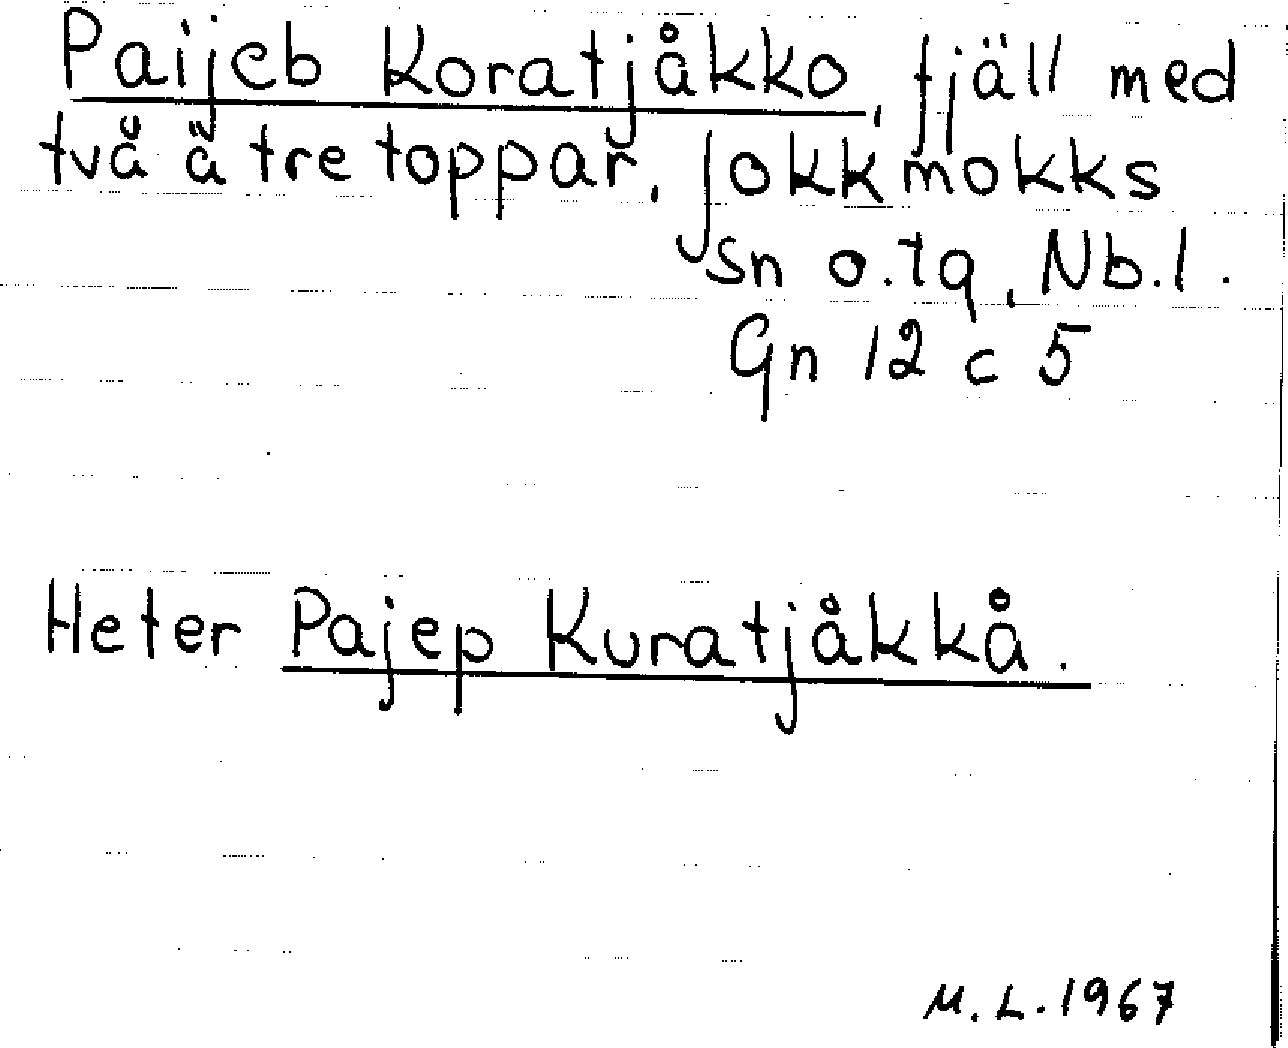 Paijeb Koratjåkko, fjäll med
två à tre toppar, Jokkmokks
sn o. tg, Nb. l.
Gn 12 c 5
Heter Pajep Kuratjåkkå.
M. L. 1967